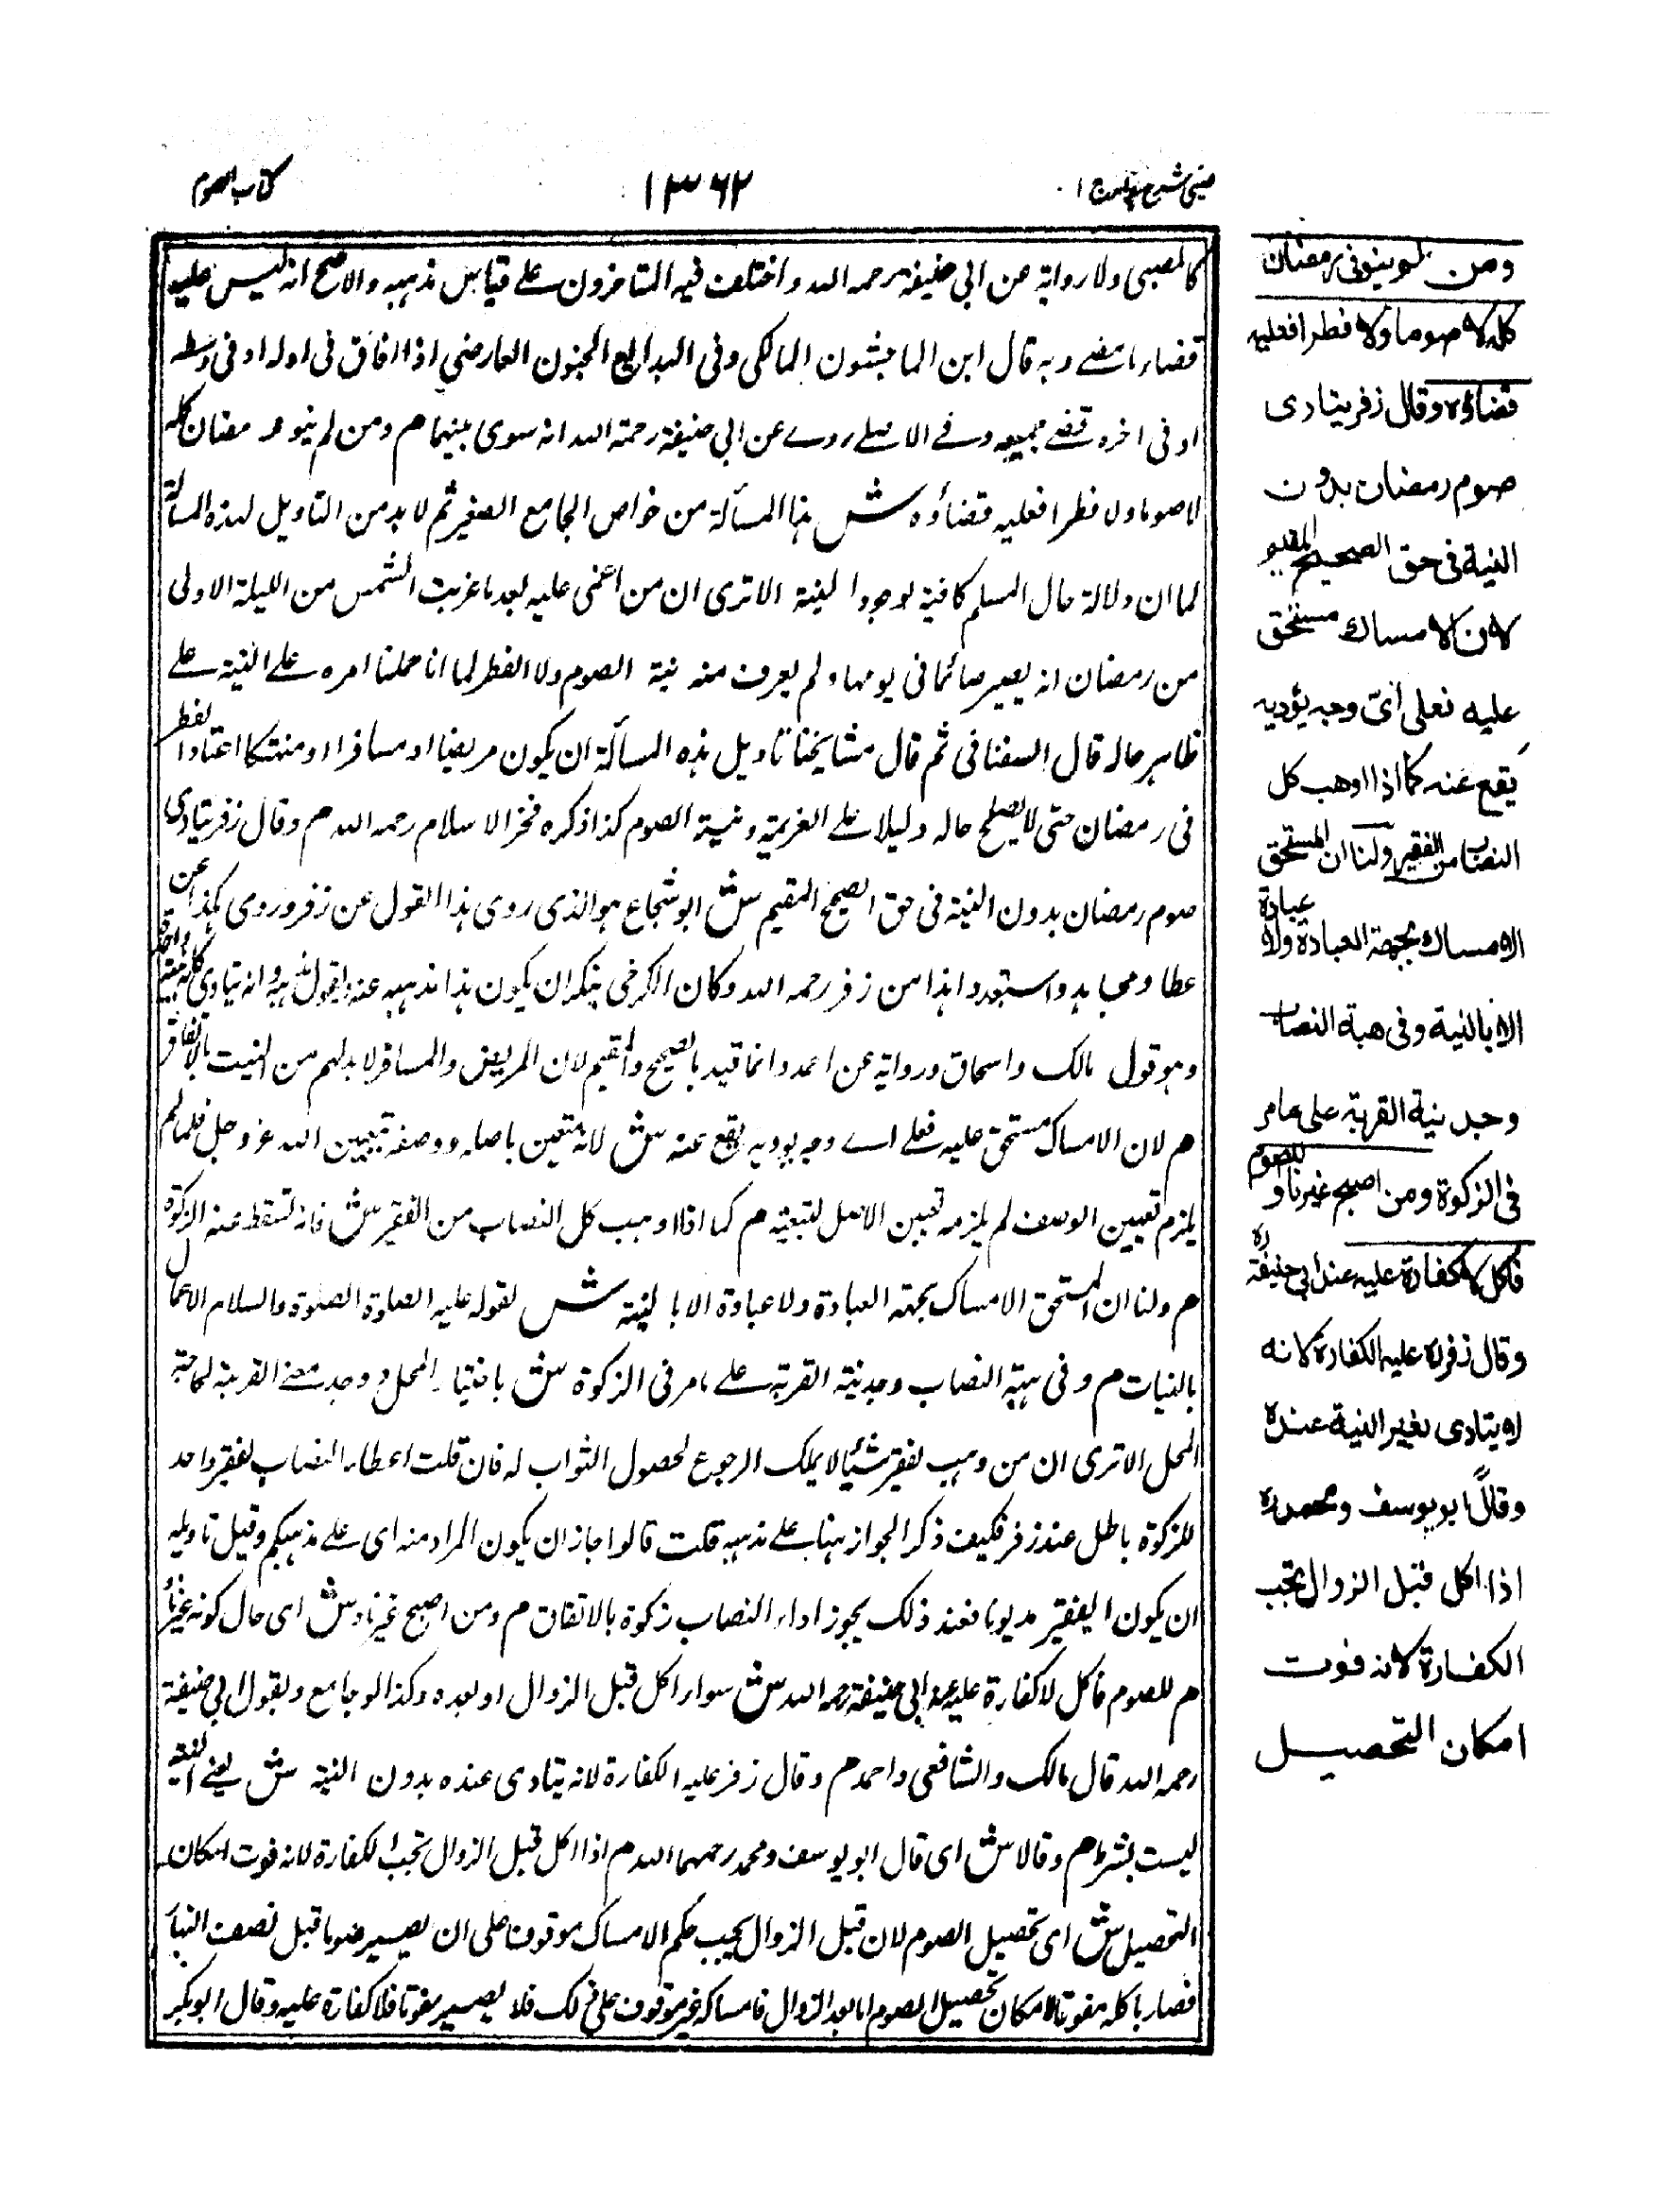 عینی شرح ہدایہ ج ١
١٣٦٢
كتاب الصوم
كالصبى ولا رواية عن ابي حنيفة رحمه الله واختلف فيه المتاخرون على قياس مذهبه والاصح انه ليس عليه
قضاء ما مضى وبه قال ابن الماجشون المالكى وفى البدائع المجنون العارضي اذا افاق فى اوله او فى وسطه
او فى اخره قضى جميعه وفى الاصل روى عن ابي حنيفة رحمة الله انه سوى بينهما م ومن لم ينو رمضان كله
لا صوما ولا فطرا فعليه قضاؤه ش هذا المسألة من خواص الجامع الصغير ثم لا بد من التاويل لهذه المسألة
لما ان دلالة حال المسلم كافية لوجود النية الا ترى ان من اغمى عليه بعد ما غربت الشمس من الليلة الاولى
من رمضان انه يصير صائما فى يومها ولم يعرف منه نية الصوم ولا الفطر لما انا حملنا امره على النية على
ظاهر حاله قال السغناقى ثم قال مشايخنا تاويل هذه المسألة ان يكون مريضا او مسافرا او منهتكا اعتاد الفطر
فى رمضان حتى لا يصلح حاله دليلا على العزيمة ونية الصوم كذا ذكره فخر الاسلام رحمه الله م وقال زفر يتادى
صوم رمضان بدون النية فى حق الصحيح المقيم ش ابو شجاع هو الذى روى هذا القول عن زفر وروى هكذا عن
عطا ومجاهد واستبعدوا هذا من زفر رحمه الله وكان الكرخى ينكر ان يكون هذا مذهبه عنه ويقول انه يتادى كله بنية واحدة
وهو قول مالك واسحاق ورواية عن احمد وانما قيد بالصحيح والمقيم لان المريض والمسافر لا بد لهم من النيت بالاتفاق
م لان الامساك مستحق عليه فعلى اى وجه يوديه يقع عنه ش لانه متعين باصله ووصفه بتعيين الله عز وجل فلما لم
يلزم تعيين الوصف لم يلزمه تعيين الاصل لتبعيته م كما اذا وهب كل النصاب من الفقير ش فانه تسقط عنه الزكوة
م ولنا ان المستحق الامساك بجهة العبادة ولا عبادة الا بالنية ش لقوله عليه الصلوة والسلام الاعمال
بالنيات م وفى هبة النصاب وجد نية القربة على ما مر فى الزكوة ش باختيار المحل وجد معنى القربة لحاجة
المحل الا ترى ان من وهب لفقير شيئا لا يملك الرجوع لحصول الثواب له فان قلت اعطاء النصاب لفقير واحد
للزكوة باطل عند زفر فكيف ذكر الجواز هنا على مذهبه قلت قالوا جاز ان يكون المراد منه اى على مذهبكم وقيل تاويله
ان يكون الفقير مديونا فعند ذلك يجوز اداء النصاب زكوة بالاتفاق م ومن اصبح غير ناو ش اى حال كونه غير ناو
م للصوم فاكل لا كفارة عليه عند ابي حنيفة رحمه الله ش سواء اكل قبل الزوال او بعده وكذا لو جامع وبقول ابي حنيفة
رحمه الله قال مالك والشافعى واحمد م وقال زفر عليه الكفارة لانه يتادى عنده بدون النية ش يعنى النية
ليست بشرط م وقالا ش اى قال ابو يوسف ومحمد رحمهما الله م اذا اكل قبل الزوال تجب الكفارة لانه فوت امكان
التحصيل ش اى تحصيل الصوم لان قبل الزوال يجب حكم الامساك موقوفا على ان يصير صوما قبل نصف النهار
فصار باكله مفوتا لامكان تحصيل الصوم اما بعد الزوال فامساكه غير موقوف على ذلك فلا يصير مفوتا فلا كفارة عليه وقال ابو بكر
ومن لم ينو فى رمضان
كله لا صوما ولا فطرا فعليه
قضاؤه وقال زفر يتادى
صوم رمضان بدون
النية فى حق الصحيح المقيم
لان الامساك مستحق
عليه فعلى اىّ وجه يؤديه
يقع عنه كما اذا اوهب كل
النصاب من الفقير ولنا ان المستحق
الامساك بجهة العبادة ولا عبادة
الا بالنية وفى هبة النصاب
وجد نية القربة على ما مر
فى الزكوة ومن اصبح غير ناو للصوم
فاكل لا كفارة عليه عند ابي حنيفة ره
وقال زفر ره عليه الكفارة لانه
يتادى بغير النية عنده
وقال ابو يوسف ومحمد ره
اذا اكل قبل الزوال تجب
الكفارة لانه فوت
امكان التحصيل